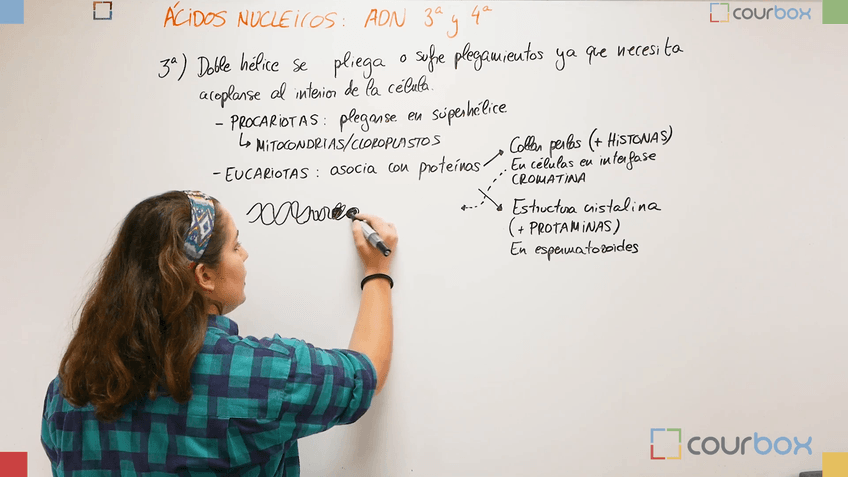 ÁCIDOS NUCLEICOS: ADN 3ª y 4ª
courbox
3ª) Doble hélice se pliega o sufre plegamientos ya que necesita
acoplarse al interior de la célula.
- PROCARIOTAS: plegarse en súperhélice
↳ MITOCONDRIAS/CLOROPLASTOS
- EUCARIOTAS: asocia con proteínas
Collar perlas (+ HISTONAS)
En células en interfase
CROMATINA
Estructura cristalina
(+ PROTAMINAS)
En espermatozoides
courbox